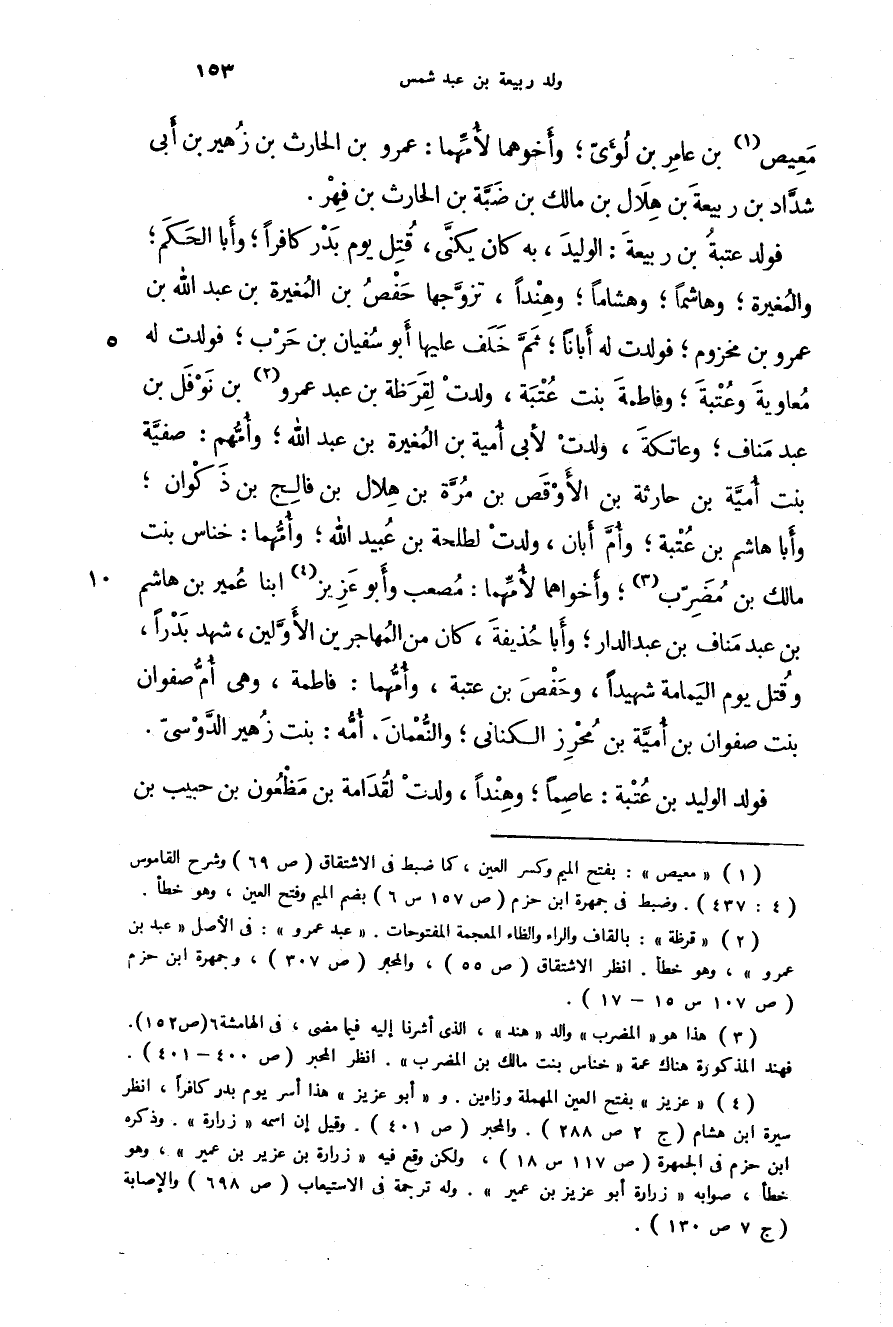 ولد ربيعة بن عبد شمس ١٥٣
مَعِيص(١) بن عامِر بن لُوَّىّ ؛ وأَخوهما لأُمِّهما : عمرو بن الحارث بن زُهير بن أَبى
شدَّاد بن ربيعةَ بن هِلَال بن مالك بن ضَبَّة بن الحارث بن فِهْر .
فولد عتبةُ بن ربيعةَ : الوليدَ ، به كان يكنَّى ، قُتِل يوم بَدْر كافراً ؛ وأَبا الحَكَم ؛
والمُغيرة ؛ وهاشماً ؛ وهشاماً ؛ وهِنْداً ، تزوَّجها حَفْصُ بن المُغيرة بن عبد الله بن
٥ عمرو بن مخزوم ؛ فولدت له أَباناً ؛ ثمَّ خَلَف عليها أَبو سُفيان بن حَرْب ؛ فولدت له
مُعاويةَ وعُتْبةَ ؛ وفاطمةَ بنت عُتْبَة ، ولدتْ لِقَرَظة بن عبد عمرو(٢) بن نَوْفَل بن
عبد مَناف ؛ وعاتكةَ ، ولدتْ لأَبى أُمية بن المُغيرة بن عبد الله ؛ وأُمُّهم : صفيَّة
بنت أُميَّة بن حارثة بن الأَوْقَص بن مُرَّة بن هِلال بن فالِج بن ذَكْوان ؛
وأَبا هاشم بن عُتْبة ؛ وأُمَّ أَبان ، ولدتْ لطلحة بن عُبيد الله ؛ وأُمُّهما : خناس بنت
١٠ مالك بن مُضَرِّب(٣) ؛ وأَخواهما لأُمِّهما : مُصعب وأَبو عَزِيز(٤) ابنا عُمير بن هاشم
بن عبد مَناف بن عبدالدار ؛ وأَبا حُذيفةَ ، كان من المُهاجرين الأَوَّلين ، شهد بَدْراً ،
وقُتل يوم اليَمامة شهيداً ، وحَفْصَ بن عتبة ، وأُمُّهما : فاطمة ، وهى أُمُّ صفوان
بنت صفوان بن أُميَّة بن مُحْرِز الكنانى ؛ والنُّعْمانَ. أُمُّه : بنت زُهير الدَّوْسىّ .
فولد الوليد بن عُتْبة : عاصِماً ؛ وهِنْداً ، ولدتْ لقُدَامة بن مَظْعُون بن حبيب بن
( ١ ) « معيص » : بفتح الميم وكسر العين ، كما ضبط فى الاشتقاق ( ص ٦٩ ) وشرح القاموس
( ٤ : ٤٣٧ ) . وضبط فى جمهرة ابن حزم ( ص ١٥٧ س ٦ ) بضم الميم وفتح العين ، وهو خطأ .
( ٢ ) « قرظة » : بالقاف والراء والظاء المعجمة المفتوحات . « عبد عمرو » : فى الأصل « عبد بن
عمرو » ، وهو خطأ . انظر الاشتقاق ( ص ٥٥ ) ، والمحبر ( ص ٣٠٧ ) ، وجمهرة ابن حزم
( ص ١٠٧ س ١٥ – ١٧ ) .
( ٣ ) هذا هو « المضرب » والد « هند » ، الذى أشرنا إليه فيما مضى ، فى الهامشة٦(ص١٥٢).
فهند المذكورة هناك عمة « خناس بنت مالك بن المضرب » . انظر المحبر ( ص ٤٠٠ – ٤٠١ ) .
( ٤ ) « عزيز » بفتح العين المهملة وزاءين . و « أبو عزيز » هذا أسر يوم بدر كافراً ، انظر
سيرة ابن هشام ( ج ٢ ص ٢٨٨ ) . والمحبر ( ص ٤٠١ ) . وقيل إن اسمه « زرارة » . وذكره
ابن حزم فى الجمهرة ( ص ١١٧ س ١٨ ) ، ولكن وقع فيه « زرارة بن عزير بن عمير » ، وهو
خطأ ، صوابه « زرارة أبو عزيز بن عمير » . وله ترجمة فى الاستيعاب ( ص ٦٩٨ ) والإصابة
( ج ٧ ص ١٣٠ ) .